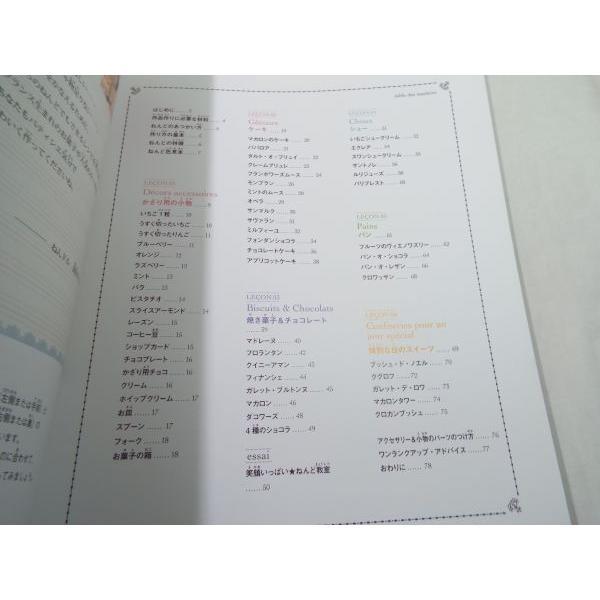 table des matières
はじめに……2
作品作りに必要な材料……4
ねんどのあつかい方……5
作り方の基本……
ねんどの特徴……
ねんど色見本……7
LEÇON 01
Décors accessoires
かざり用の小物……9
いちご1粒……10
うすく切ったいちご……10
うすく切ったりんご……11
ブルーベリー……12
オレンジ……12
ラズベリー……13
ミント……13
バラ……13
ピスタチオ……14
スライスアーモンド……14
レーズン……15
コーヒー豆……15
ショップカード……15
チョコプレート……16
かざり用チョコ……16
クリーム……16
ホイップクリーム……17
お皿……17
スプーン……17
フォーク……18
お菓子の箱……18
LEÇON 02
Gâteaux
ケーキ……19
マカロンのケーキ……20
ババロア……21
タルト・オ・フリュイ……21
クレームブリュレ……23
フランボワーズムース……24
モンブラン……26
ミントのムース……26
オペラ……28
サンマルク……31
サヴァラン……31
ミルフィーユ……33
フォンダンショコラ……34
チョコレートケーキ……36
アプリコットケーキ……38
LEÇON 03
Biscuits & Chocolats
焼き菓子&チョコレート
……39
マドレーヌ……40
フロランタン……41
クイニーアマン……41
フィナンシェ……44
ガレット・ブルトンヌ……45
マカロン……46
ダコワーズ……48
4種のショコラ……49
essai
笑顔いっぱい★ねんど教室
……50
Choux
シュー……51
いちごシュークリーム……52
エクレア……54
スワンシュークリーム……55
サントノレ……56
ルリジューズ……58
パリブレスト……60
LEÇON 05
Pains
パン……61
フルーツのヴィエノワズリー……62
パン・オ・ショコラ……64
パン・オ・レザン……66
クロワッサン……68
LEÇON 06
Confiseries pour un
jour spécial
特別な日のスイーツ……69
ブッシュ・ド・ノエル……70
クグロフ……72
ガレット・デ・ロワ……73
マカロンタワー……74
クロカンブッシュ……74
アクセサリー&小物のパーツのつけ方……76
ワンランクアップ・アドバイス……77
おわりに……78